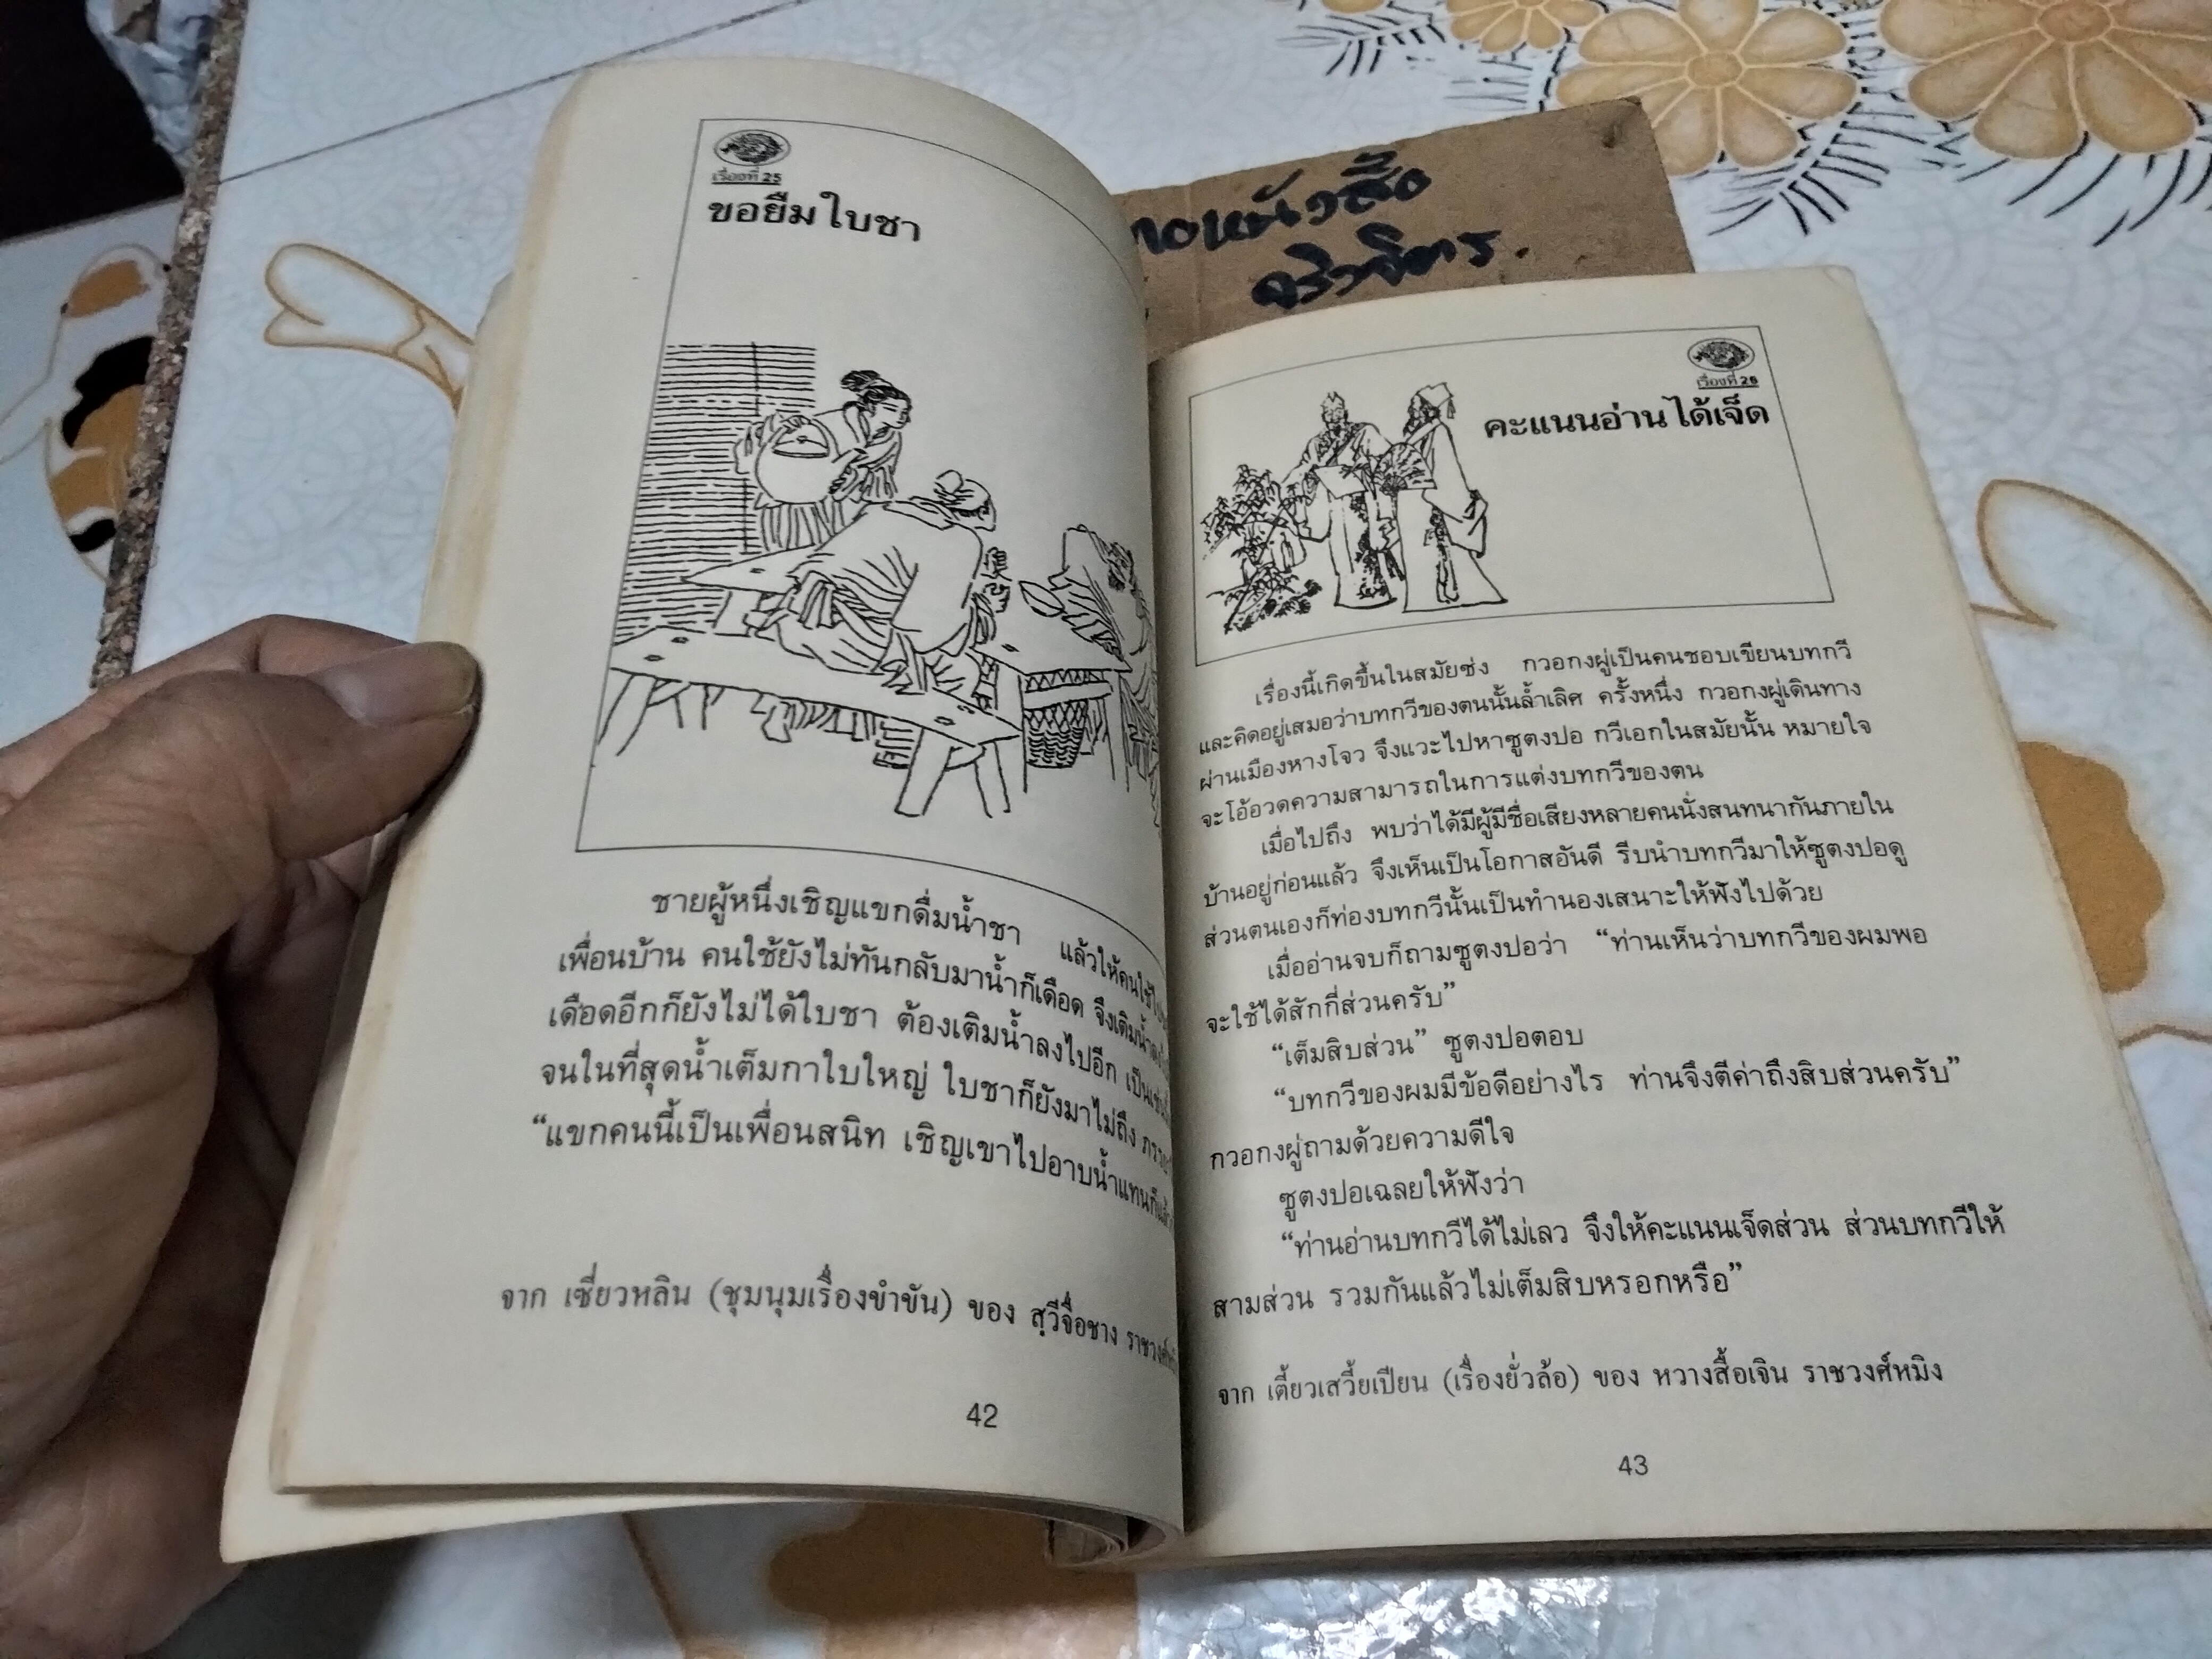 เรื่องที่ 25
ขอยืมใบชา
ชายผู้หนึ่งเชิญแขกดื่มน้ำชา แล้วให้คนใช้
เพื่อนบ้าน คนใช้ยังไม่ทันกลับมาน้ำก็เดือด จึงเติมน้ำ
เดือดอีกก็ยังไม่ได้ใบชา ต้องเติมน้ำลงไปอีก
จนในที่สุดน้ำเต็มกาใบใหญ่ ใบชาก็ยังมาไม่ถึง
“แขกคนนี้เป็นเพื่อนสนิท เชิญเขาไปอาบน้ำแทน
จาก เซี่ยวหลิน (ชุมนุมเรื่องขำขัน) ของ สุวีจื่อชาง
42
หนังสือ
เรื่องที่ 26
คะแนนอ่านได้เจ็ด
เรื่องนี้เกิดขึ้นในสมัยซ่ง กวอกงผู่เป็นคนชอบเขียนบทกวี
และคิดอยู่เสมอว่าบทกวีของตนนั้นล้ำเลิศ ครั้งหนึ่ง กวอกงผู่เดินทาง
ผ่านเมืองหางโจว จึงแวะไปหาซูตงปอ กวีเอกในสมัยนั้น หมายใจ
จะโอ้อวดความสามารถในการแต่งบทกวีของตน
เมื่อไปถึง พบว่าได้มีผู้มีชื่อเสียงหลายคนนั่งสนทนากันภายใน
บ้านอยู่ก่อนแล้ว จึงเห็นเป็นโอกาสอันดี รีบนำบทกวีมาให้ซูตงปอดู
ส่วนตนเองก็ท่องบทกวีนั้นเป็นทำนองเสนาะให้ฟังไปด้วย
เมื่ออ่านจบก็ถามซูตงปอว่า “ท่านเห็นว่าบทกวีของผมพอ
จะใช้ได้สักกี่ส่วนครับ”
“เต็มสิบส่วน” ซูตงปอตอบ
“บทกวีของผมมีข้อดีอย่างไร ท่านจึงตีค่าถึงสิบส่วนครับ”
กวอกงผู่ถามด้วยความดีใจ
ซูตงปอเฉลยให้ฟังว่า
“ท่านอ่านบทกวีได้ไม่เลว จึงให้คะแนนเจ็ดส่วน ส่วนบทกวีให้
สามส่วน รวมกันแล้วไม่เต็มสิบหรอกหรือ”
จาก เตี้ยวเสวี้ยเปียน (เรื่องยั่วล้อ) ของ หวางสื้อเจิน ราชวงศ์หมิง
43